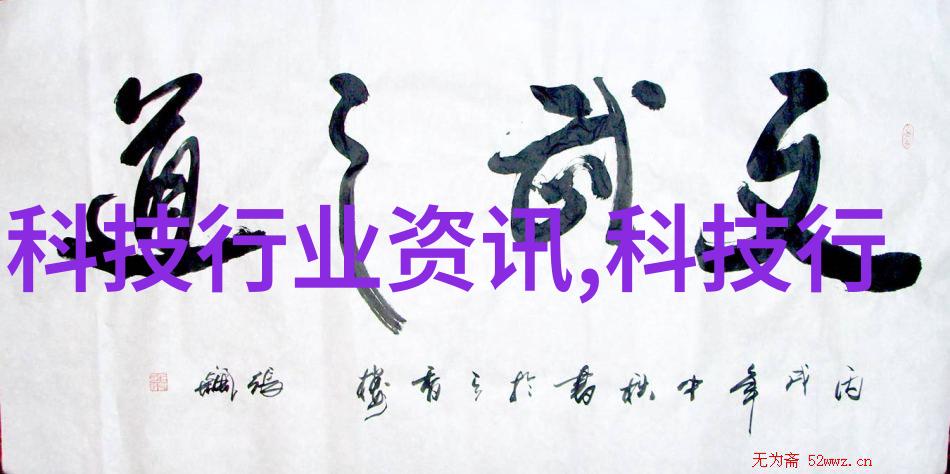 文武之道
科技行业资讯,科技行
丙戌年中秋書於香樓
无为斋 52wwz.cn